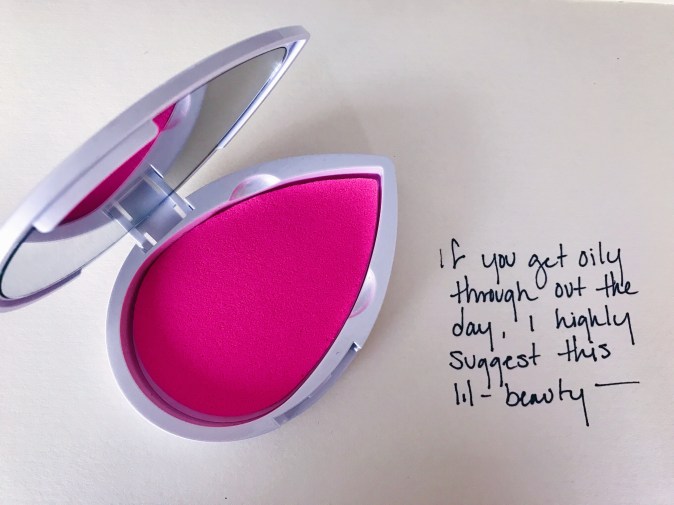 If you get oily
through out the
day, I highly
suggest this
lil- beauty—